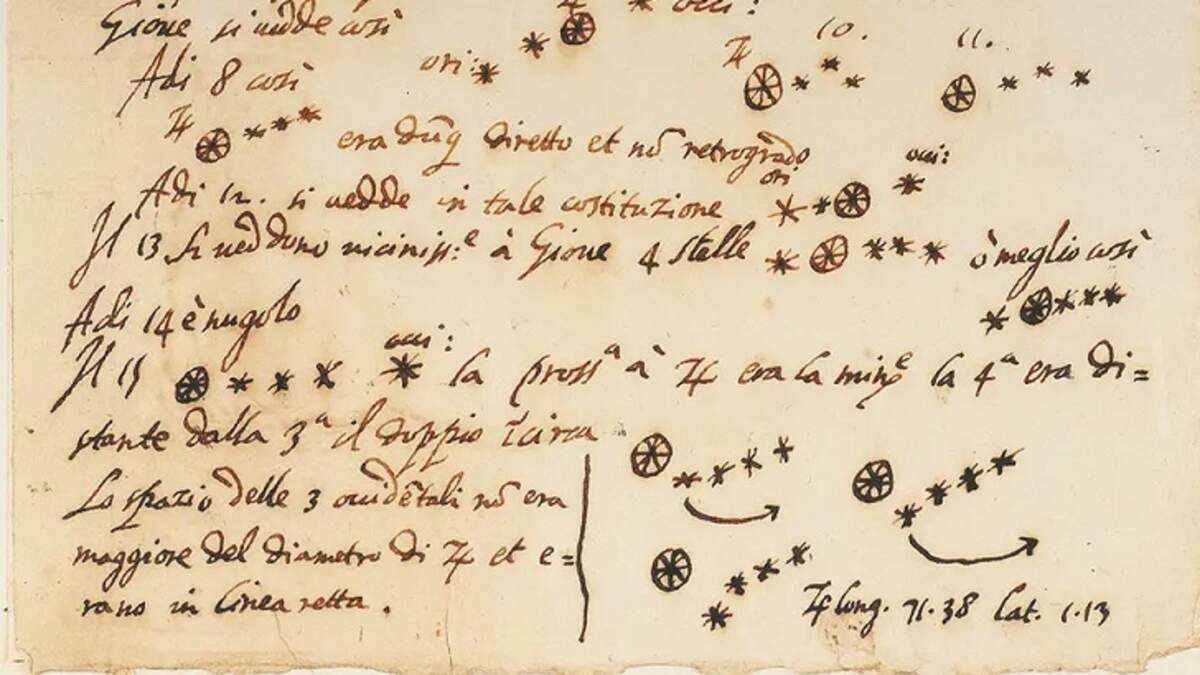 ♃ * occi:
Giove si vidde così
Adi 8 così ori: ♃ 10. 11.
♃ era dūq diretto et nō retrogrado
Adi 12. si vedde in tale costituzione ori occi:
Il 13 si veddono viciniss:ᵉ à Giove 4 stelle ò meglio così
Adi 14 è nugolo
Il 15 occi: la prossᵃ à ♃ era la minᵉ la 4ᵃ era di=
stante dalla 3ᵃ il doppio circa
Lo spazio delle 3 occidētali nō era
maggiore del diametro di ♃ et e=
rano in linea retta.
♃ long. 71.38 lat. 1.13